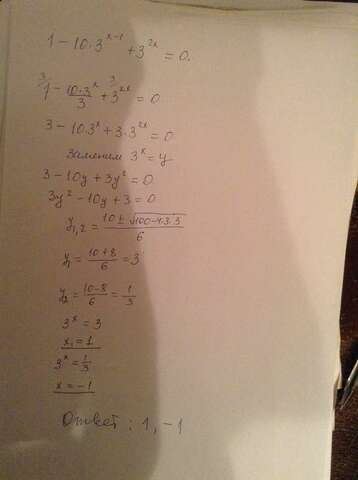 1 − 10·3^(x−1) + 3^(2x) = 0.
3/ 1 − 10·3^x/3 + 3/ 3^(2x) = 0
3 − 10·3^x + 3·3^(2x) = 0
Заменим 3^x = y
3 − 10y + 3y² = 0
3y² − 10y + 3 = 0
y₁,₂ = (10 ± √(100−4·3·3))/6
y₁ = (10+8)/6 = 3
y₂ = (10−8)/6 = 1/3
3^x = 3
x₁ = 1
3^x = 1/3
x = −1
Ответ : 1, −1